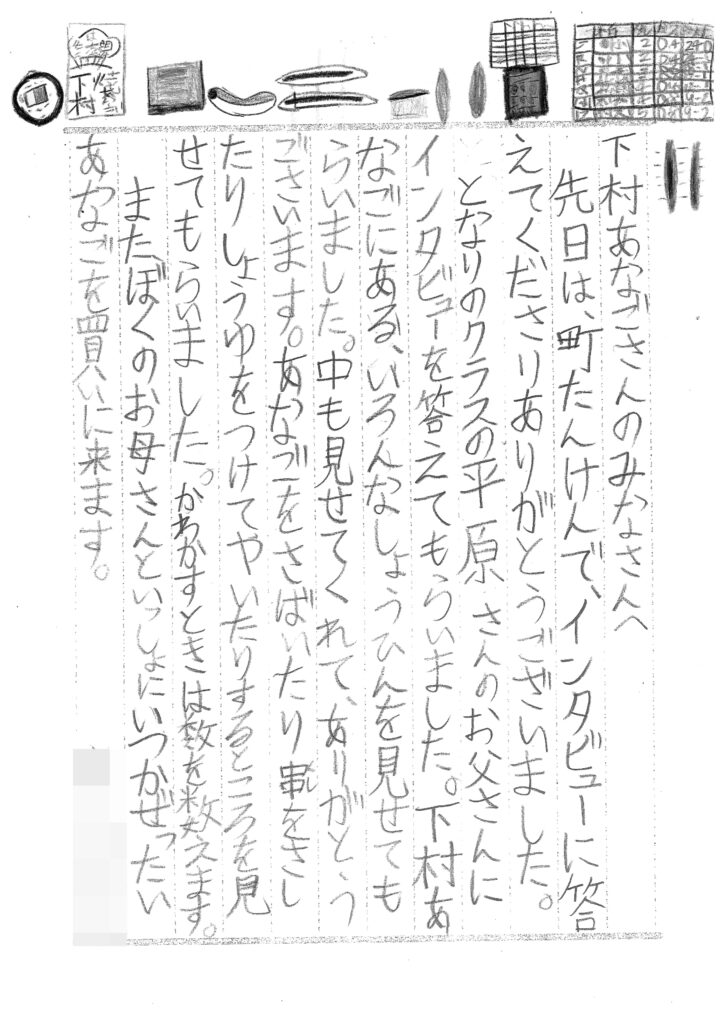 下村あなごさんのみなさんへ
先日は、町たんけんで、インタビューに答
えてくださりありがとうございました。
となりのクラスの平原さんのお父さんに
インタビューを答えてもらいました。下村あ
なごにある、いろんなしょうひんを見せても
らいました。中も見せてくれて、ありがとう
ございます。あなごをさばいたり串をさし
たりしょうゆをつけてやいたりするところを見
せてもらいました。かわかすときは数を数えます。
またぼくのお母さんといっしょにいつかぜったい
あなごを買いに来ます。
下村